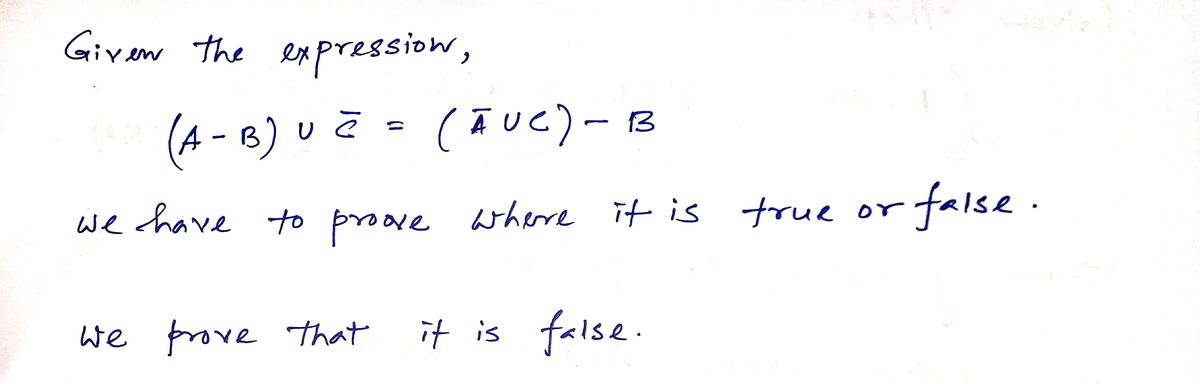 Given the expression,
(A - B) ∪ C̄ = (Ā ∪ C) - B
we have to proove where it is true or false.
We prove that it is false.